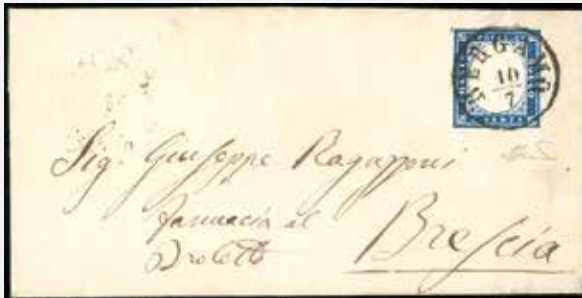 BERGAMO
10
7
Sig. Giuseppe Ragazzoni
Farmacia al
Broletto
Brescia